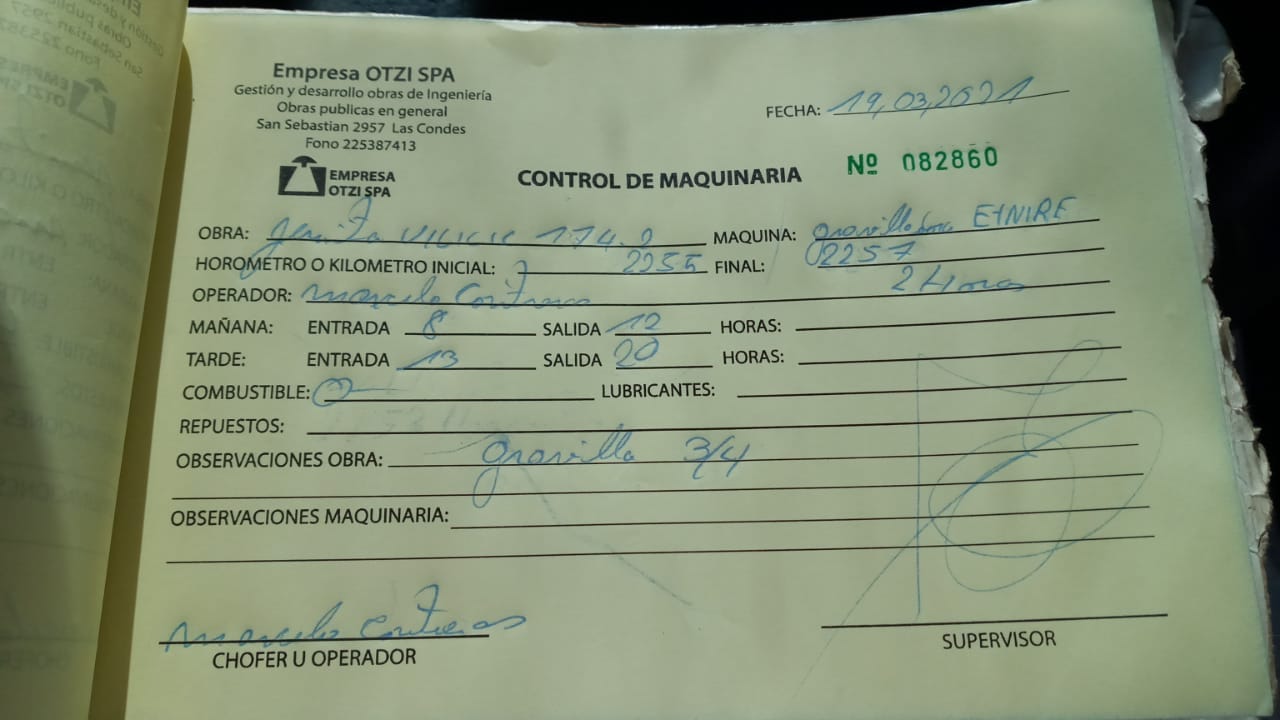 Empresa OTZI SPA
Gestión y desarrollo obras de Ingeniería
Obras publicas en general
San Sebastian 2957 Las Condes
Fono 225387413
EMPRESA
OTZI SPA
FECHA: 19,03,2021
Nº 082860
CONTROL DE MAQUINARIA
OBRA: 174.2 MAQUINA: gravilladora ETNIRE
HOROMETRO O KILOMETRO INICIAL: 2255 FINAL: 02257
OPERADOR: Marcelo Contreras 2 Horas
MAÑANA: ENTRADA 8 SALIDA 12 HORAS:
TARDE: ENTRADA 13 SALIDA 20 HORAS:
COMBUSTIBLE: LUBRICANTES:
REPUESTOS:
OBSERVACIONES OBRA: gravilla 3/4
OBSERVACIONES MAQUINARIA:
Marcelo Contreras
CHOFER U OPERADOR
SUPERVISOR